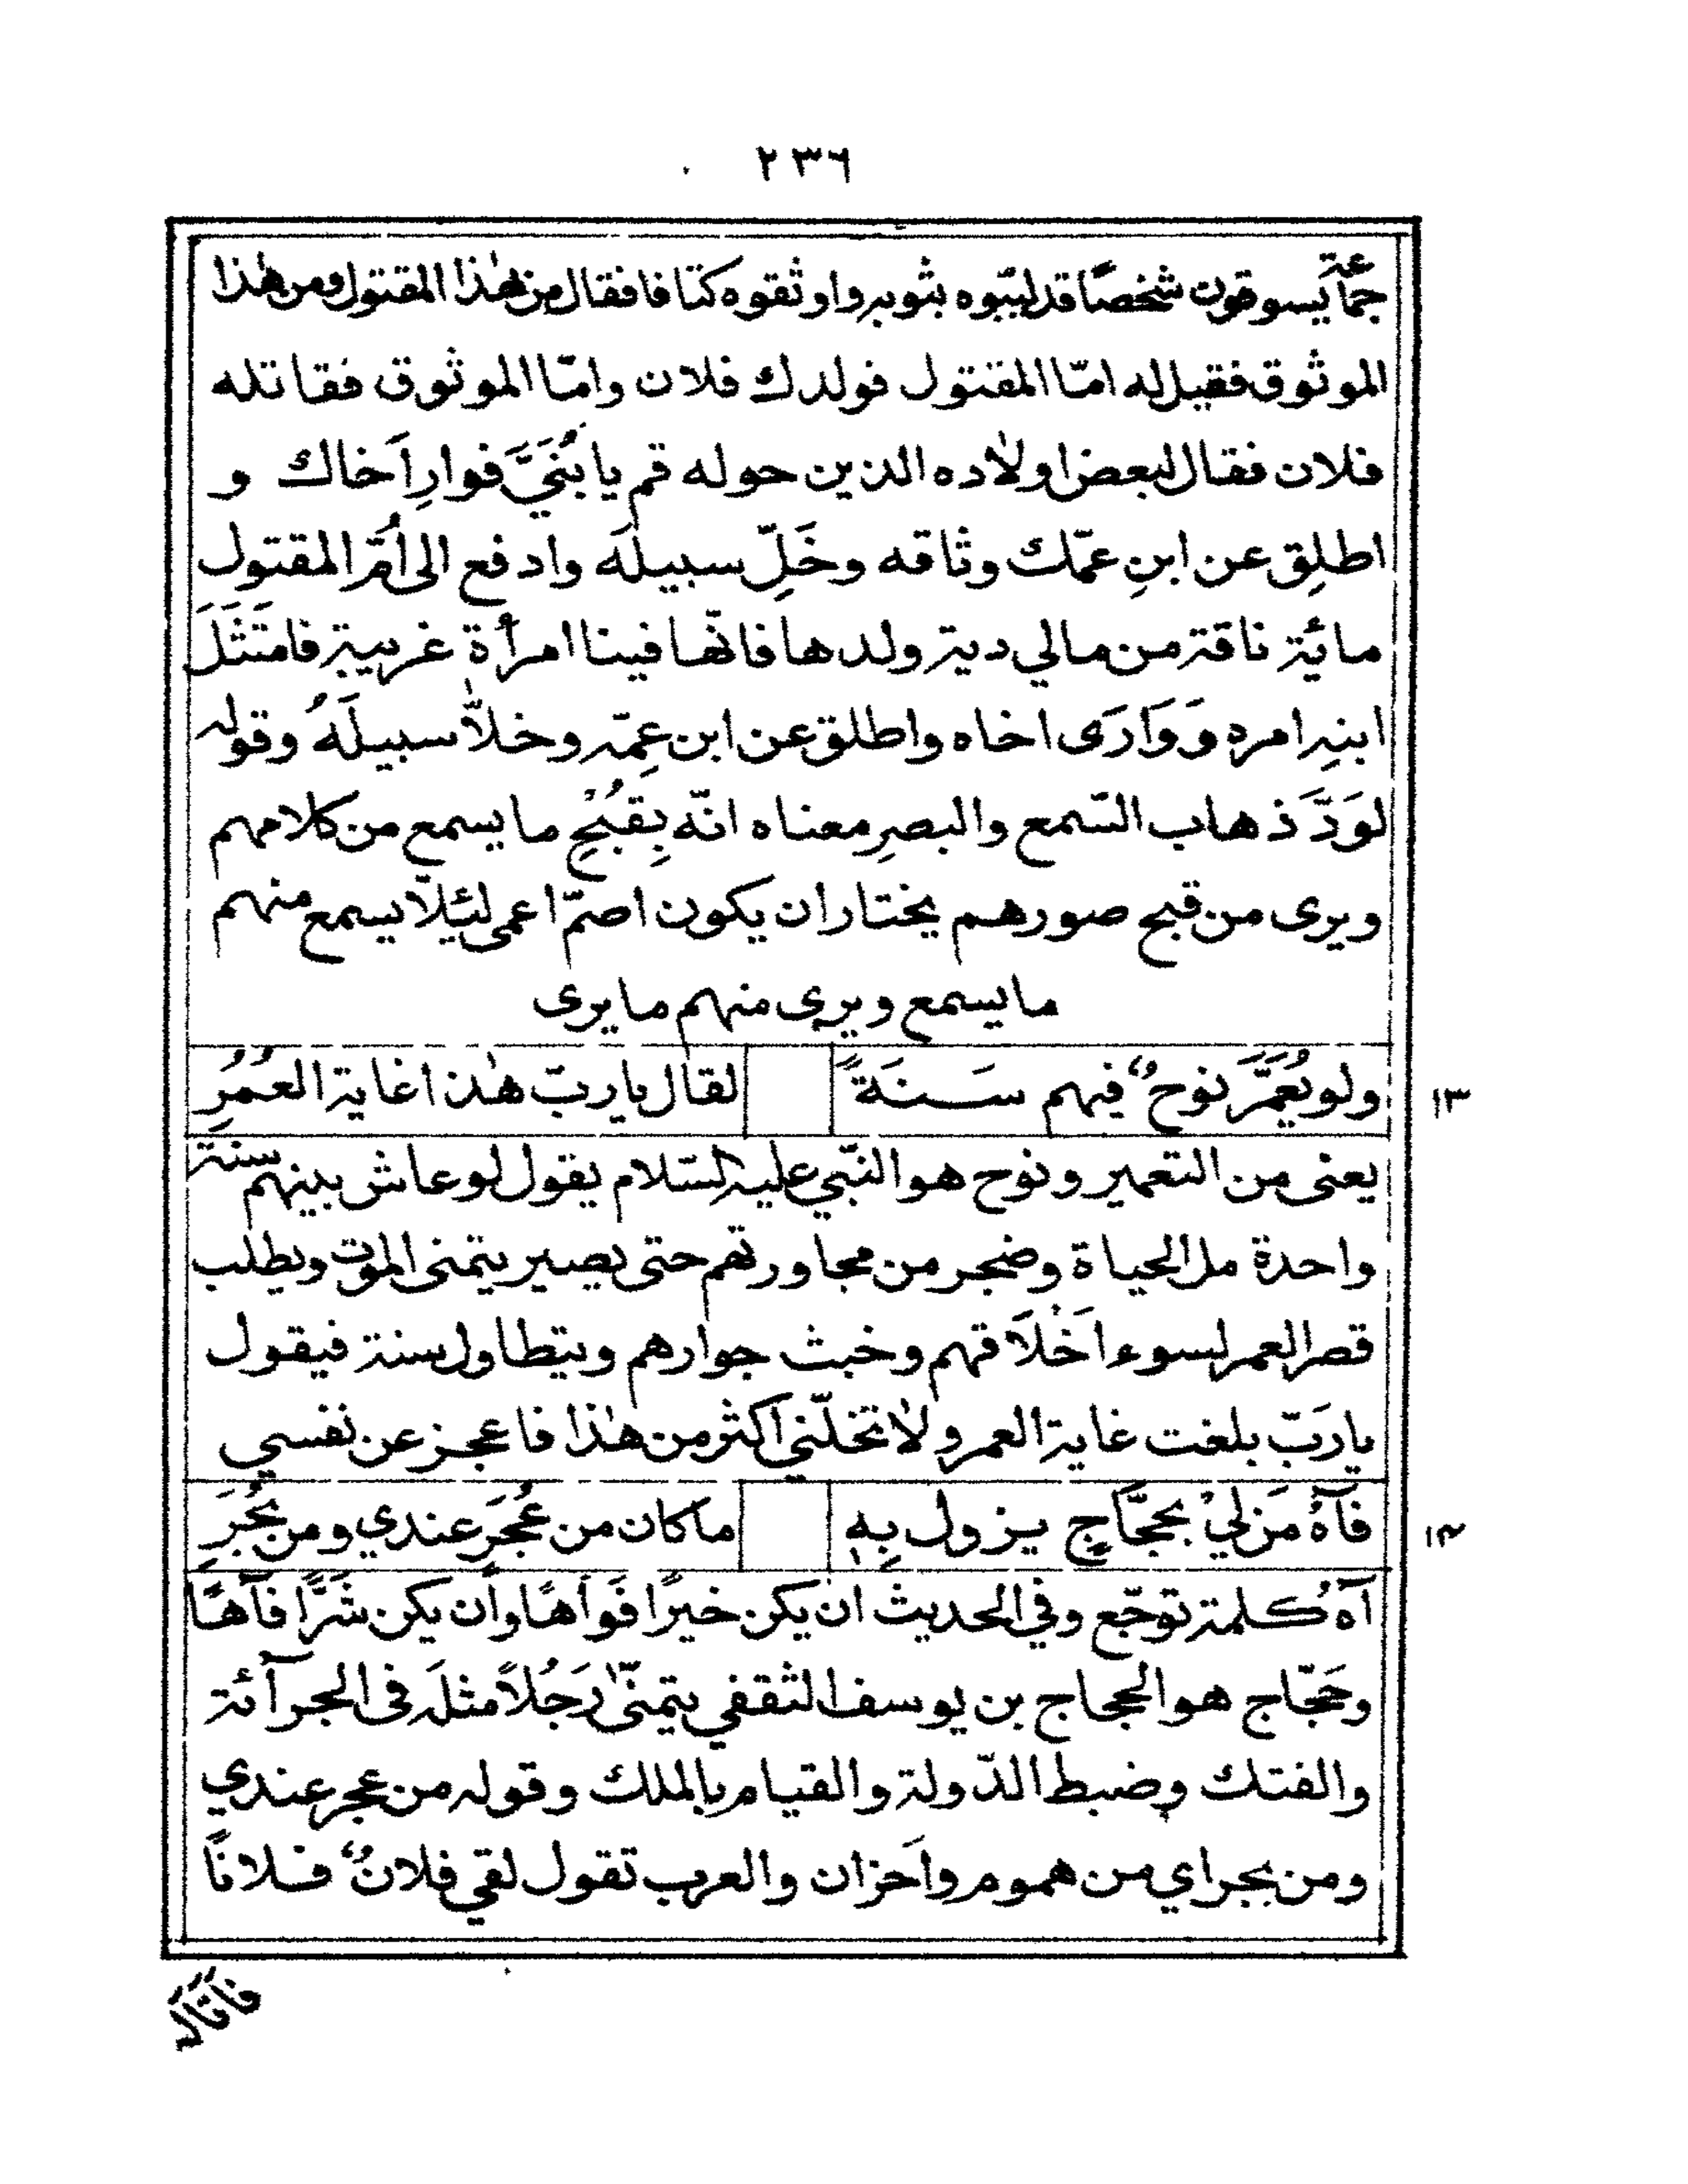 ٢٣٦
جماعة يسوقون شخصًا قد لببوه بثوبه واوثقوه كتافا فقال من هٰذا المقتول ومن هٰذا
الموثوق فقيل له امّا المقتول فولدك فلان وامّا الموثوق فقاتله
فلان فقال لبعض اولاده الذين حوله قم يا بُنَيَّ فوارِ اَخاك و
اطلِق عن ابنِ عمّك وثاقه وخَلِّ سبيلَه وادفع الى اُمّ المقتول
مائة ناقة من مالي دية ولدها فانّها فينا امرأة غريبة فامتَثَلَ
ابنهِ امره وَوَارَى اخاه واطلق عن ابن عمِّه وخلّا سبيلَهُ وقوله
لوَدَّ ذهاب السّمع والبصرِ معناه انّه بِقُبْحِ ما يسمع من كلامهم
ويرى من قبح صورهم يختار ان يكون اصمّ اعمى لئِلّا يسمع منهم
ما يسمع ويرى منهم ما يرى
ولو يُعَمَّرَ نوحٌ فيهم سَنَةً لقال يا ربّ هٰذا غاية العُمُرِ
١٣
يعنى من التعمير ونوح هو النّبي عليه السّلام يقول لو عاش بينهم سنة
واحدة مل الحياة وضجر من مجاورتهم حتى يصير يتمنى الموت ويطلب
قصر العمر لسوء اَخْلَاقهم وخبث جوارهم ويتطاول سنة فيقول
يا رَبّ بلغت غاية العمر ولا تخلّني اكثر من هٰذا فاعجز عن نفسي
فآهُ مَن لِيْ بحجَّاجٍ يزول بِهِ ما كان من عُجَرٍ عندي ومن بُجَرِ
١٤
آهُ كلمة توجّع وفي الحديث ان يكن خيرًا فَوَاهًا وان يكن شَرًّا فآهًا
وحَجّاج هو الحجاج بن يوسف الثقفي يتمنّى رَجُلًا مثلَه فى الجرآئة
والفتك وضبط الدّولة والقيام بالملك وقوله من عجر عندي
ومن بجر اي من هموم واَحزان والعرب تقول لقي فلانٌ فلانًا